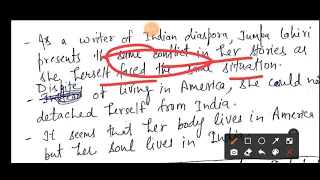 - As a writer of Indian diaspora, Jumpa Lahiri
presents the same conflict in her stories as
she herself faced the same situation.
Dispite of living in America, she could no
detached herself from India.
- It seems that her body lives in America
but her soul lives in Indi